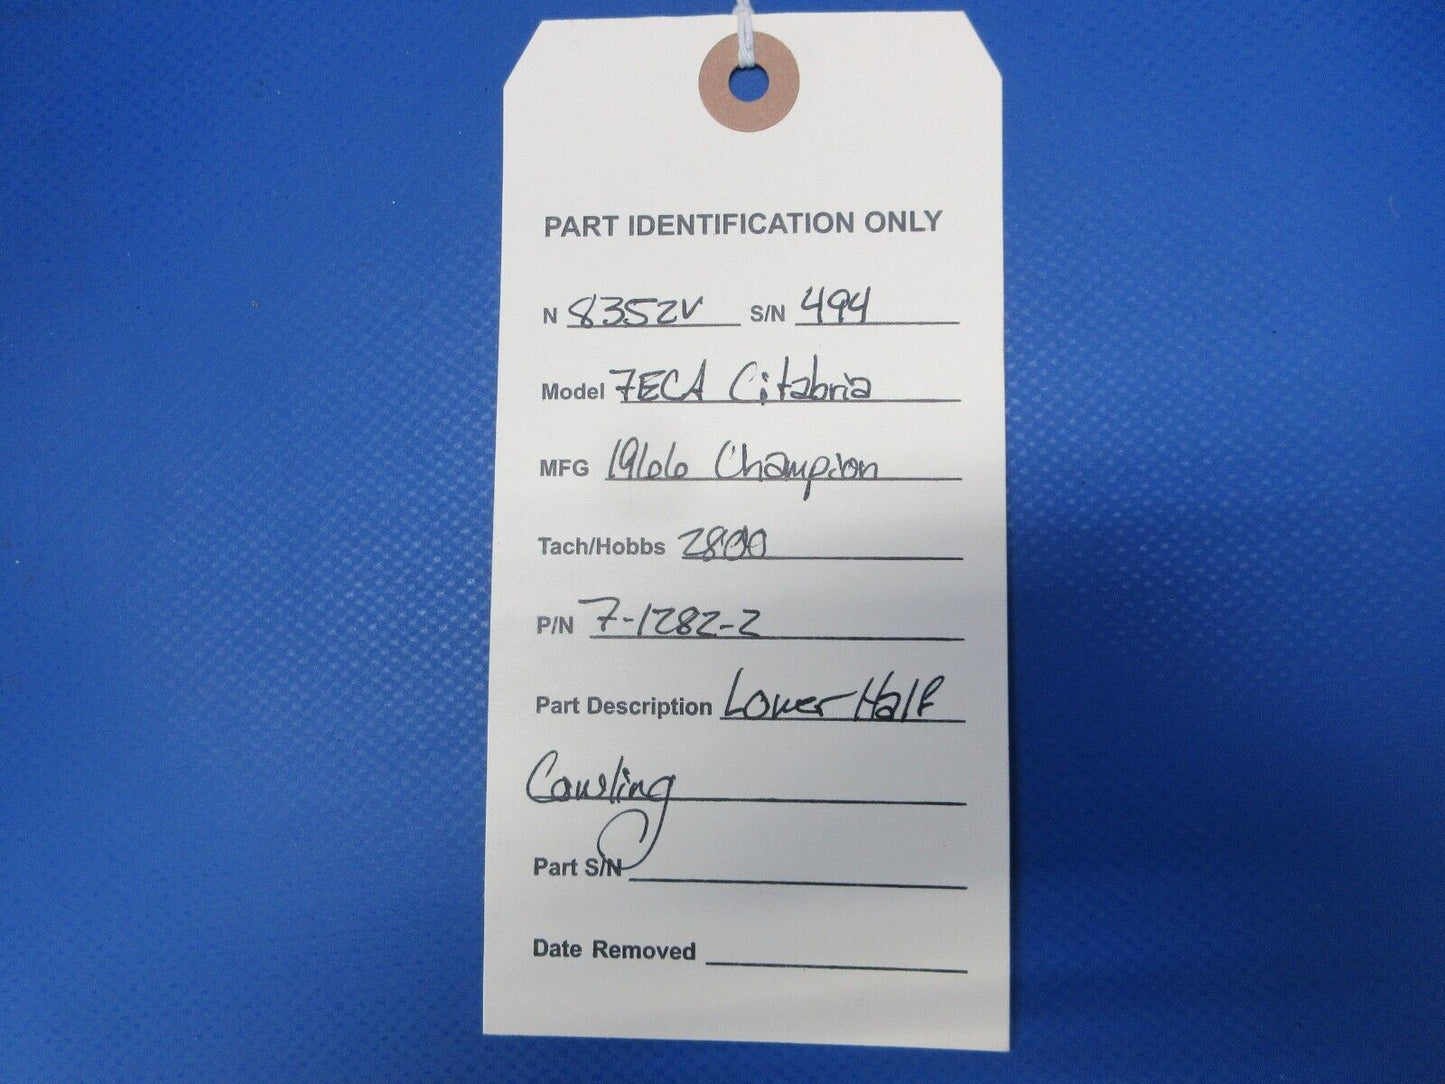 PART IDENTIFICATION ONLY
N 8352V S/N 494
Model 7ECA Citabria
MFG 1966 Champion
Tach/Hobbs 2800
P/N 7-1282-2
Part Description Lower Half
Cowling
Part S/N
Date Removed